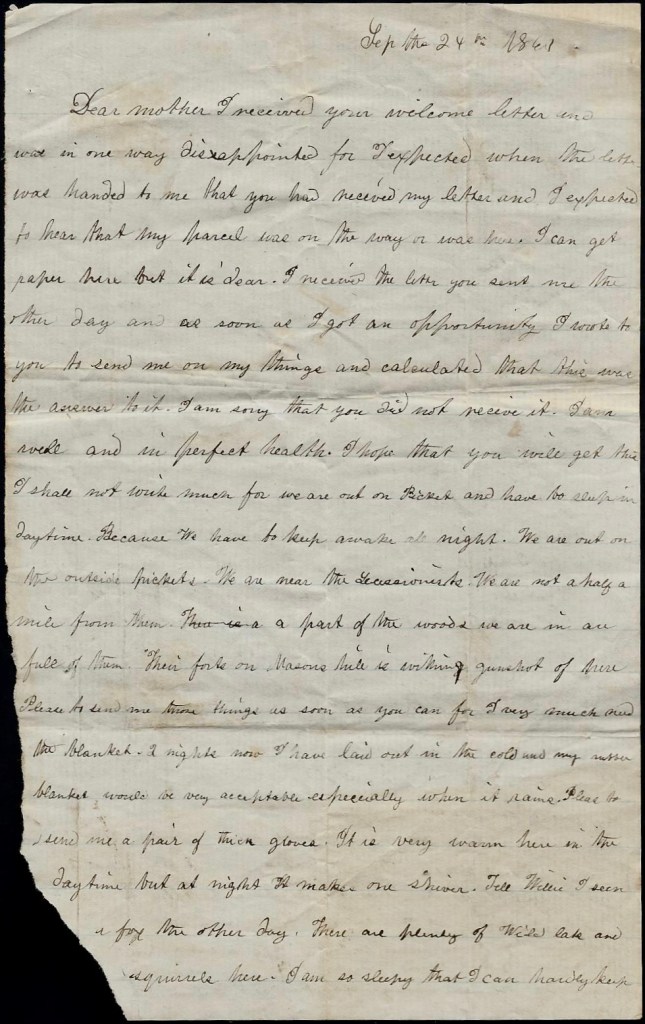 Sep the 24th 1861
Dear mother I received your welcome letter and
was in one way disappointed for I expected when the lette
was handed to me that you had received my letter and I expected
to hear that my parcel was on the way or was here. I can get
paper here but it is dear. I received the letter you sent me the
other day and as soon as I got an opportunity I wrote to
you to send me on my things and calculated that this was
the answer to it. I am sorry that you did not receive it. I am
well and in perfect health. I hope that you will get this
I shall not write much for we are out on Picket and have to sleep in
daytime. Because We have to keep awake all night. We are out on
the outside pickets. We are near the Secessionists. We are not a half a
mile from them. There is a a part of the woods we are in are
full of them. Their forts on Masons hill is withing gunshot of here
Please to send me those things as soon as you can for I very much need
the blanket. 2 nights now I have laid out in the cold and my rubber
blanket would be very acceptable especially when it rains. Pleas to
send me a pair of thick gloves. It is very warm here in the
daytime but at night It makes one shiver. Tell Willie I seen
a fox the other day. There are plenty of Wild cats and
squirrels here. I am so sleepy that I can hardly keep